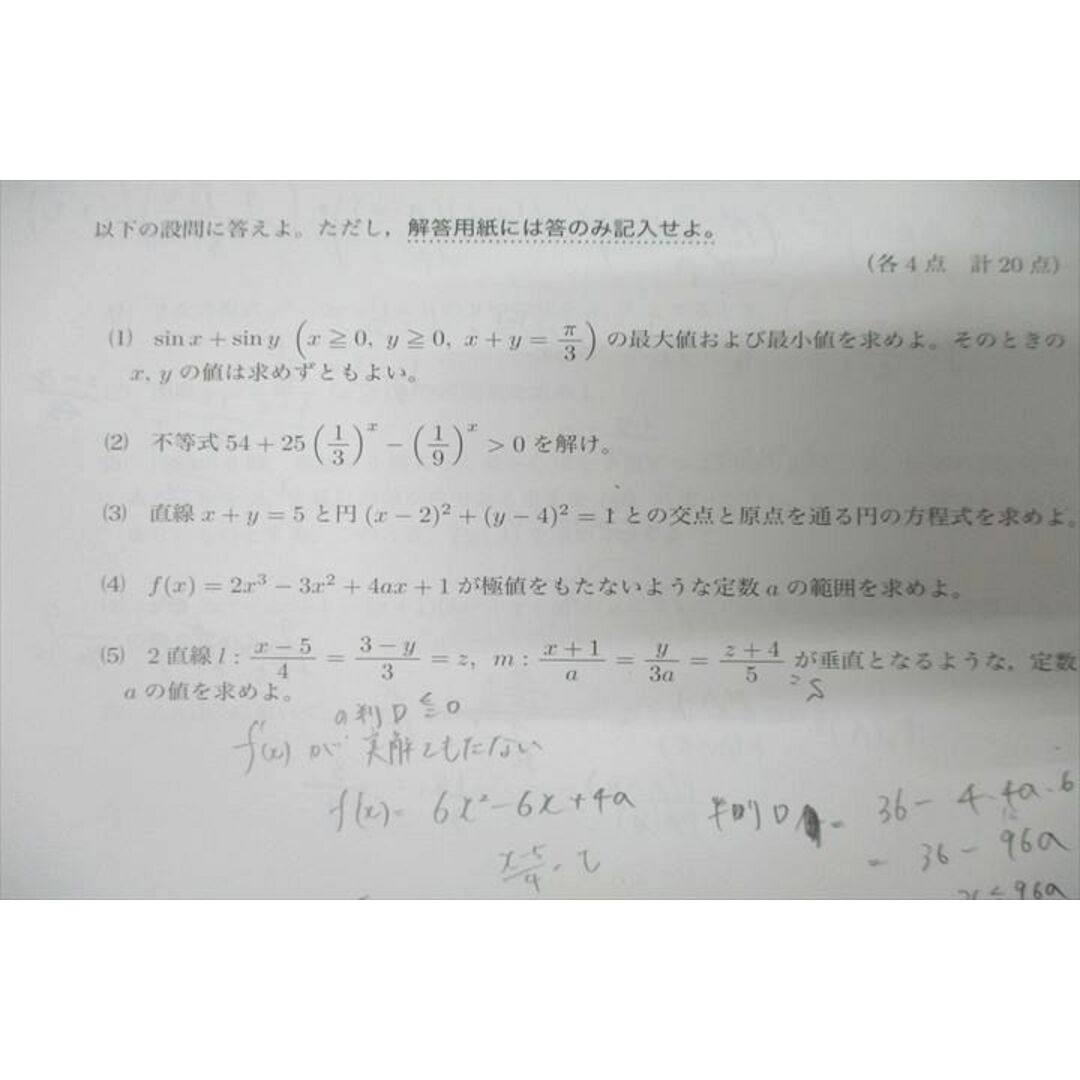 以下の設問に答えよ。ただし，解答用紙には答のみ記入せよ。
(各4点 計20点)
(1) sin x + sin y (x ≧ 0, y ≧ 0, x + y = π/3) の最大値および最小値を求めよ。そのときの
x, y の値は求めずともよい。
(2) 不等式 54 + 25(1/3)^x − (1/9)^x > 0 を解け。
(3) 直線 x + y = 5 と円 (x − 2)² + (y − 4)² = 1 との交点と原点を通る円の方程式を求めよ。
(4) f(x) = 2x³ − 3x² + 4ax + 1 が極値をもたないような定数 a の範囲を求めよ。
(5) 2直線 l : (x − 5)/4 = (3 − y)/3 = z, m : (x + 1)/a = y/3a = (z + 4)/5 が垂直となるような，定数
a の値を求めよ。
の判D ≦ 0
f'(x) が 実解をもたない
f'(x) = 6x² − 6x + 4a
判別D = 36 − 4·4a·6
= 36 − 96a
x−5/4
96a